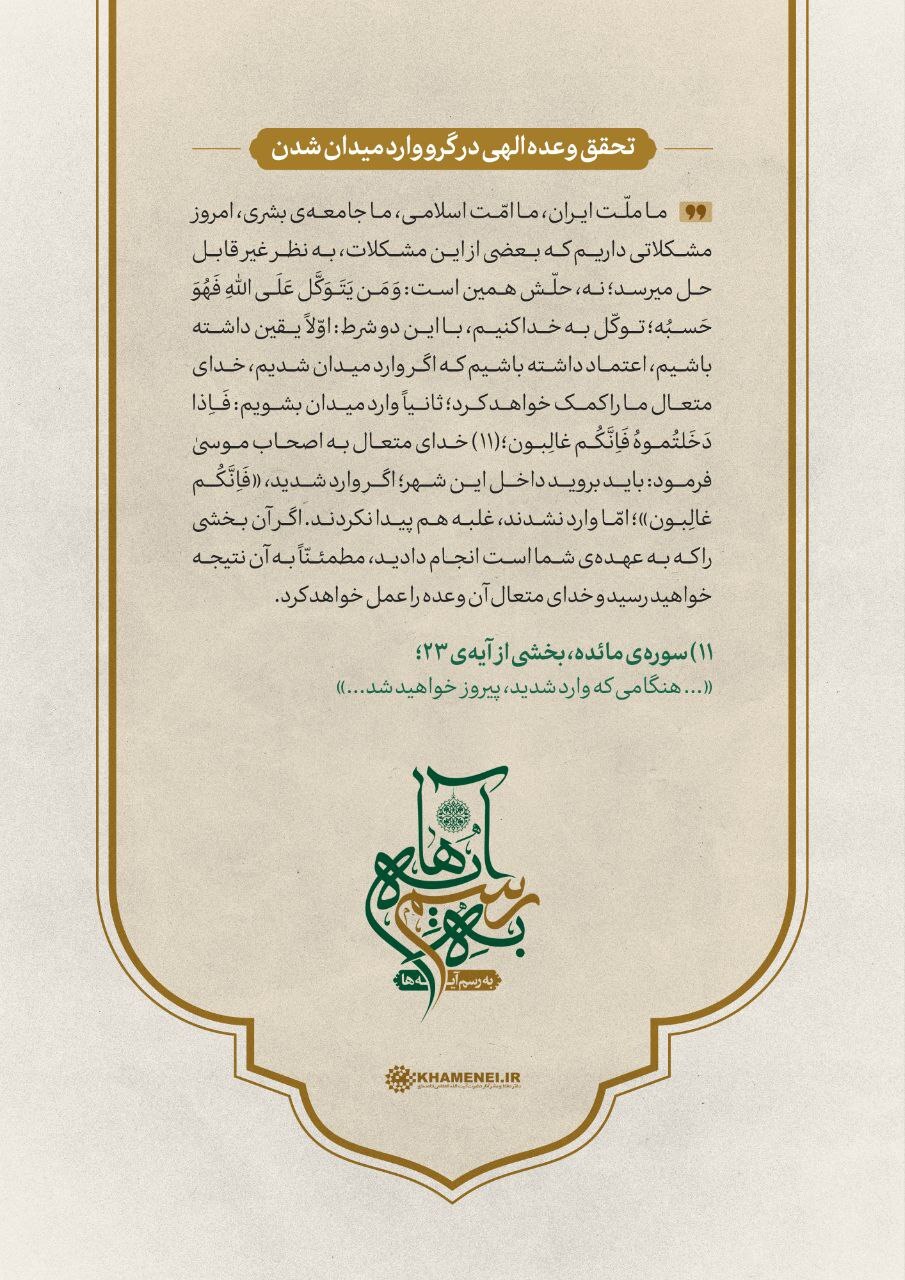 تحقق وعده الهی در گرو وارد میدان شدن
ما ملّت ایران، ما امّت اسلامی، ما جامعه‌ی بشری، امروز
مشکلاتی داریم که بعضی از این مشکلات، به نظر غیر قابل
حل میرسد؛ نه، حلّش همین است: وَمَن یَتَوَکَّل عَلَی اللهِ فَهُوَ
حَسبُه؛ توکّل به خدا کنیم، با این دو شرط: اوّلاً یقین داشته
باشیم، اعتماد داشته باشیم که اگر وارد میدان شدیم، خدای
متعال ما را کمک خواهد کرد؛ ثانیاً وارد میدان بشویم: فَاِذا
دَخَلتُموهُ فَاِنَّکُم غالِبون؛(۱۱) خدای متعال به اصحاب موسیٰ
فرمود: باید بروید داخل این شهر؛ اگر وارد شدید، «فَاِنَّکُم
غالِبون»؛ امّا وارد نشدند، غلبه هم پیدا نکردند. اگر آن بخشی
را که به عهده‌ی شما است انجام دادید، مطمئنّاً به آن نتیجه
خواهید رسید و خدای متعال آن وعده را عمل خواهد کرد.
۱۱) سوره‌ی مائده، بخشی از آیه‌ی ۲۳؛
«... هنگامی که وارد شدید، پیروز خواهید شد...»
به رسم آیه‌ها
به رسم آیه‌ها
KHAMENEI.IR